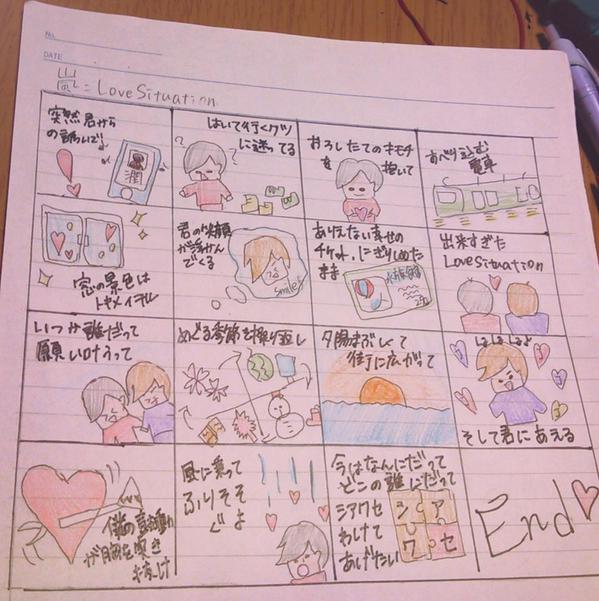 No.
DATE
嵐=LoveSituation
突然君から
の誘いで!
潤
はいて行くクツ
に迷ってる
おろしたてのキモチ
を抱いて
すべりこむ
電車
窓の景色は
トキメイテル
君の笑顔
が浮かん
でくる
Smile!
ありえない幸せの
チケット、にぎりしめた
まま
出来すぎた
LoveSituation
いつか誰だって
願い叶うって
めぐる季節を繰り返し
夕陽まぶしくて
街に広がって
そして君にあえる
僕の鼓動
が胸を突き
抜け
風に乗って
ふりそそ
ぐよ
今はなんにだって
どこの誰にだって
シアワセ
わけて
あげたい
シア
ワセ
End